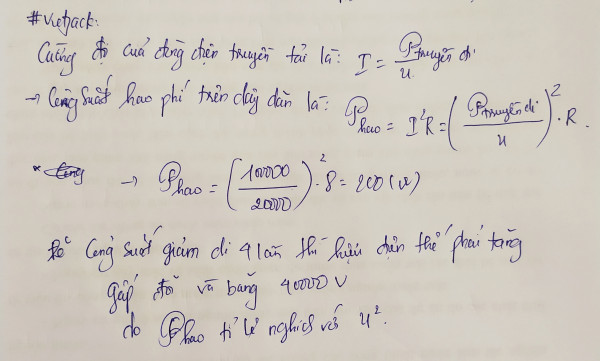 #vietjack:
Cường độ của dòng điện truyền tải là: I = P truyền đi / U
→ Công suất hao phí trên dây dẫn là: P hao = I²R = (P truyền đi / U)² . R
→ P hao = (100000 / 20000)² . 8 = 200 (W)
Để công suất giảm đi 4 lần thì hiệu điện thế phải tăng
gấp đôi và bằng 40000 V
do P hao tỉ lệ nghịch với U².